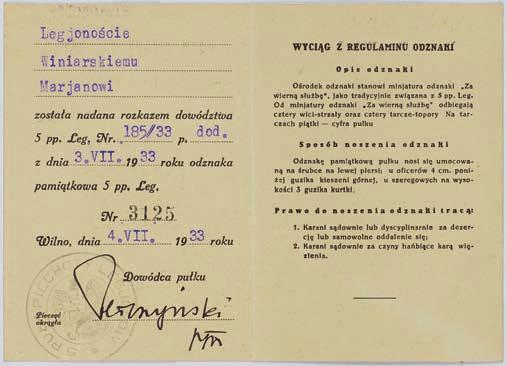 Legjonoście
Winiarskiemu
Marjanowi
została nadana rozkazem dowództwa
5 pp. Leg, Nr. 185//33 p. dod.
z dnia 3.VII. 1933 roku odznaka
pamiątkowa 5 pp. Leg.
Nr 3125
Wilno, dnia 4.VII. 1933 roku
Dowódca pułku
Pieczęć
okrągła
WYCIĄG Z REGULAMINU ODZNAKI
Opis odznaki
Ośrodek odznaki stanowi minjatura odznaki „Za
wierną służbę", jako tradycyjnie związana z 5 pp. Leg.
Od minjatury odznaki „Za wierną służbę" odbiegają
cztery wici-strzały oraz cztery tarcze-topory Na tar-
czach piątki — cyfra pułku
Sposób noszenia odznaki
Odznakę pamiątkową pułku nosi się umocowa-
ną na śrubce na lewej piersi; u oficerów 4 cm. poni-
żej guzika kieszeni górnej, u szeregowych na wyso-
kości 3 guzika kurtki.
Prawo do noszenia odznaki tracą:
1. Karani sądownie lub dyscyplinarnie za dezer-
cję lub samowolne oddalenie się;
2. Karani sądownie za czyny hańbiące karą wię-
zienia.